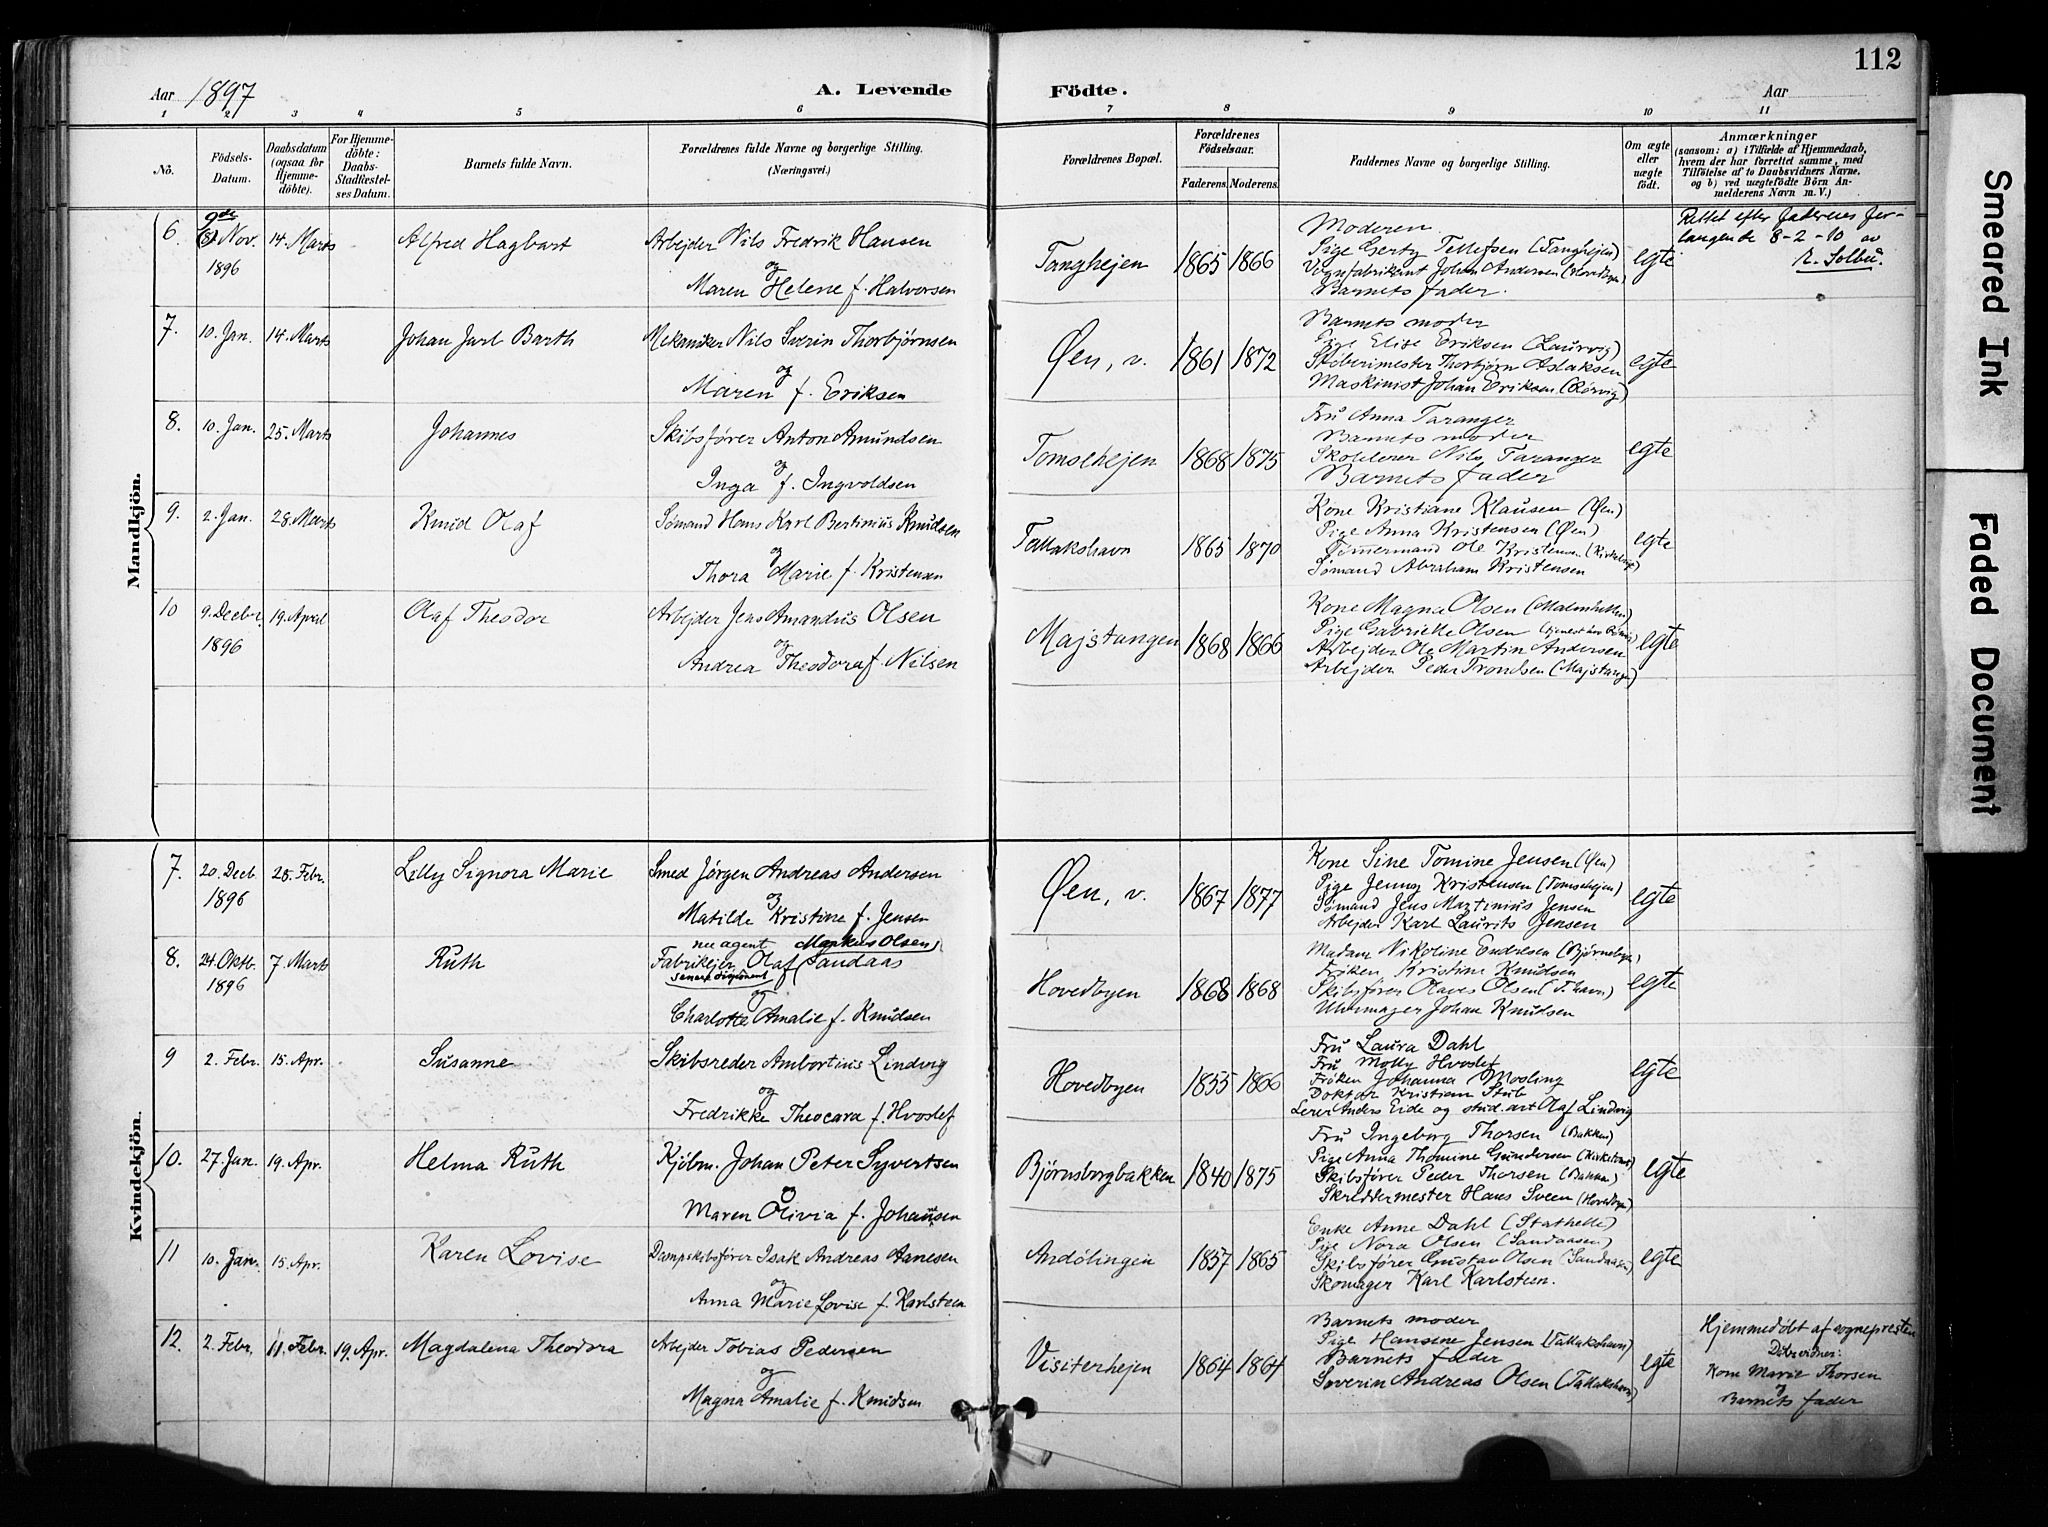 112
Aar 1897
A. Levende
Födte.
Aar
1 2 3 4 5 6 7 8 9 10 11
No.
Födsels-Datum.
Daabsdatum (ogsaa for Hjemme-döbte).
For Hjemme-döbte: Daabs-Stadfæstel-ses Datum.
Barnets fulde Navn.
Forældrenes fulde Navne og borgerlige Stilling.
(Næringsvei.)
Forældrenes Bopæl.
Forældrenes Födselsaar.
Faderens. Moderens.
Faddernes Navne og borgerlige Stilling.
Om ægte eller uægte födt.
Anmærkninger
(saasom: a) i Tilfælde af Hjemmedaab,
hvem der har forrettet samme, med
Tilföielse af to Daabsvidners Navne,
og b) ved uægtefödte Börn An-
melderens Navn m. V.)
Mandkjön.
6. 9de Nov. 1896 14. Marts Alfred Hagbart
Arbejder Nils Fredrik Hansen
og
Maren Helene f. Halvorsen
Tanghejen 1865 1866
Moderen.
Pige Gerty Tellefsen (Tanghejen)
Vognfabrikant Johan Andersen (Hovedbyen)
Barnets fader.
egte
Rettet efter faderens for-
langende 8-2-10 av
R. Solbu.
7. 10. Jan. 14. Marts Johan Jarl Barth
Mekaniker Nils Sverin Thorbjørnsen
og
Maren f. Eriksen
Øen, v. 1861 1872
Barnets moder
Pige Elise Eriksen (Laurvig)
Støberimester Thorbjørn Aslaksen
Maskinist Johan Eriksen (Rørvig)
egte
8. 10. Jan. 25. Marts Johannes
Skibsfører Anton Amundsen
og
Inga f. Ingvoldsen
Tomsehejen 1868 1875
Fru Anna Taranger
Barnets moder
Skolelærer Nils Taranger
Barnets fader
egte
9. 2. Jan. 28. Marts Knud Olaf
Sømand Hans Karl Bertinius Knudsen
og
Thora Marie f. Kristensen
Tallakshavn 1865 1870
Kone Kristiane Klausen (Øen)
Pige Anna Kristensen (Øen)
Tømmermand Ole Kristensen
Sømand Abraham Kristensen
egte
10 9. Decbr. 1896 19. April Olaf Theodor
Arbejder Jens Amandus Olsen
og
Andrea Theodora f. Nilsen
Majstangen 1868 1866
Kone Magna Olsen (Malmhellen)
Pige Gabrielle Olsen
Arbejder Ole Martin Andersen
Arbejder Peder Trondsen (Majstangen)
egte
Kvindekjön.
7. 20. Decb. 1896 28. Febr. Lilly Signora Marie
Smed Jørgen Andreas Andersen
og
Matilde Kristine f. Jensen
Øen, v. 1867 1877
Kone Sine Tomine Jensen (Øen)
Pige Jenny Kristensen (Tomsehejen)
Sømand Jens Martinius Jensen
Arbejder Karl Laurits Jensen
egte
8. 24. Oktb. 1896 7. Marts Ruth
nu agent Markus Olsen
Fabrikejer Olaf Sandaas
senere disponent
og
Charlotte Amalie f. Knudsen
Hovedbyen 1868 1868
Madam Nikoline Endresen (Bjørnsbyen)
Frøken Kristine Knudsen
Skibsfører Olaves Olsen (T.havn)
Uhrmager Johan Knudsen
egte
9 2. Febr. 15. Apr. Susanne
Skibsreder Ambortius Lindvig
og
Fredrikke Theocara f. Hvoslef
Hovedbyen 1855 1866
Fru Laura Dahl
Fru Molly Hvoslef
Frøken Johanna Mosling
Doktor Kristian Stub
Lærer Anders Eide og stud. art Olaf Lindvig
egte
10. 27. Jan. 19. Apr. Helma Ruth
Kjøbm. Johan Peter Syvertsen
og
Maren Olivia f. Johansen
Bjørnsborgbakken 1840 1875
Fru Ingeborg Thorsen (Bakken)
Pige Anna Thomine Gundersen
Skibsfører Peder Thorsen (Bakken)
Skreddermester Hans Sveen (Hovedbyen)
egte
11 10. Jan. 15. Apr. Karen Lovise
Dampskibsfører Isak Andreas Aanesen
og
Anna Marie Lovise f. Karlsteen
Andølingen 1857 1865
Enke Anne Dahl (Stathelle)
Pige Nora Olsen (Sandaasen)
Skibsfører Gustav Olsen (Sandaasen)
Skomager Karl Karlsteen.
egte
12. 2. Febr. 11. Febr. 19. Apr. Magdalena Theodora
Arbejder Tobias Pedersen
og
Magna Amalie f. Knudsen
Visiterhejen 1864 1864
Barnets moder
Pige Hansine Jensen (Tallakshavn)
Barnets fader
Severin Andreas Olsen (Tallakshavn)
egte
Hjemmedøbt af sognepresten
Dåbsvidner:
Kone Marie Thorsen
og
Barnets fader
Smeared Ink
Faded Document